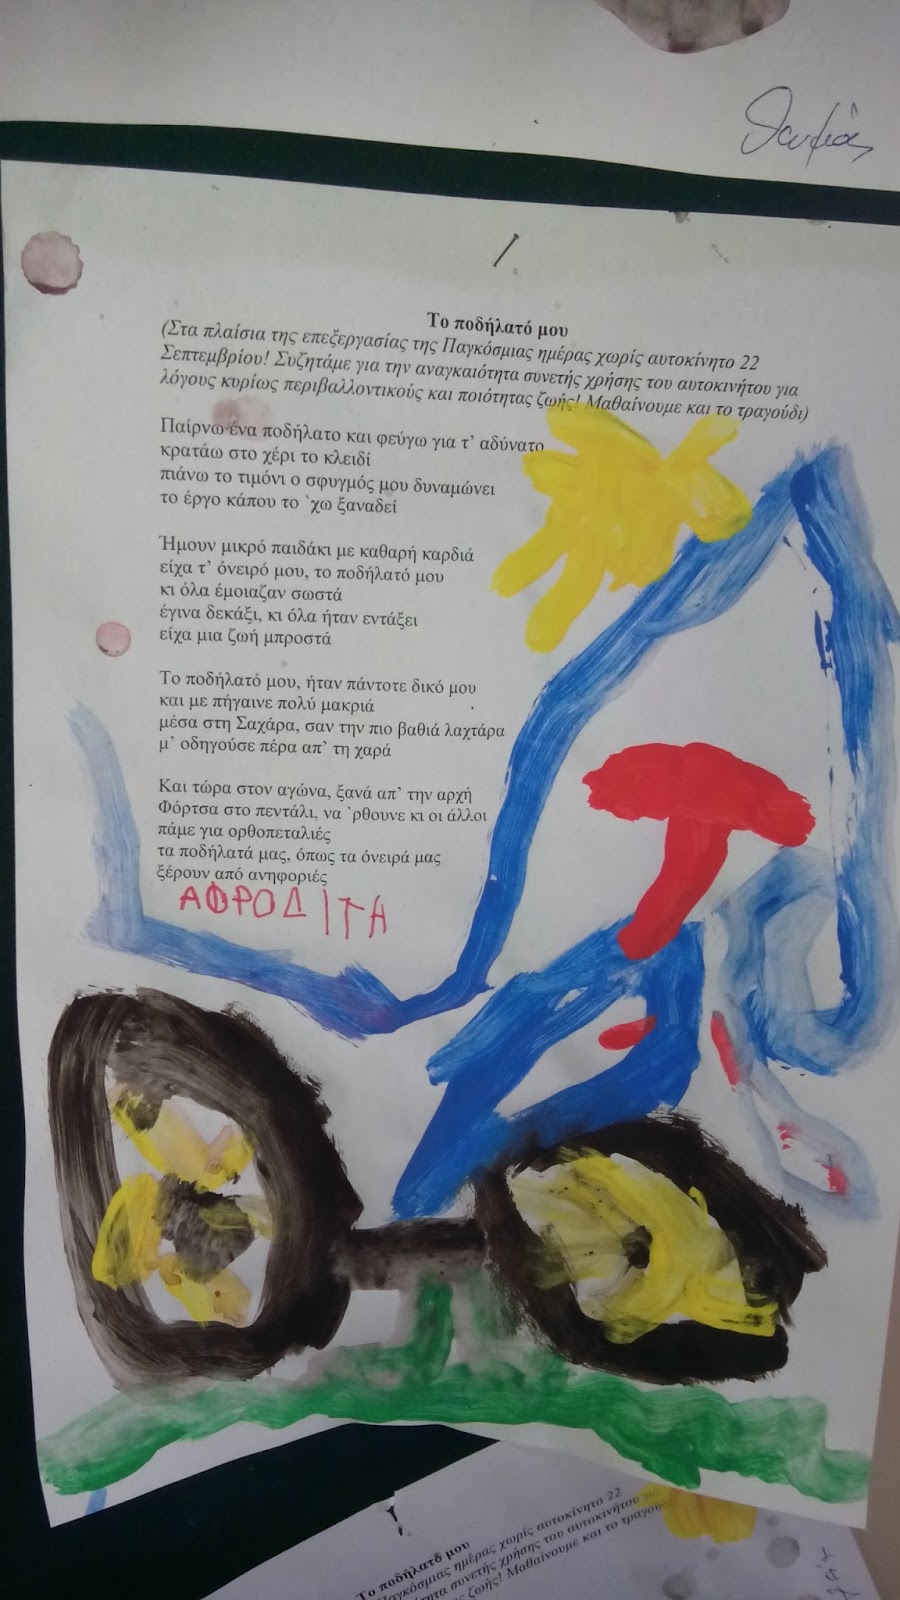 Θωμάς
Το ποδήλατό μου
(Στα πλαίσια της επεξεργασίας της Παγκόσμιας ημέρας χωρίς αυτοκίνητο 22
Σεπτεμβρίου! Συζητάμε για την αναγκαιότητα συνετής χρήσης του αυτοκινήτου για
λόγους κυρίως περιβαλλοντικούς και ποιότητας ζωής! Μαθαίνουμε και το τραγούδι)
Παίρνω ένα ποδήλατο και φεύγω για τ’ αδύνατο
κρατάω στο χέρι το κλειδί
πιάνω το τιμόνι ο σφυγμός μου δυναμώνει
το έργο κάπου το `χω ξαναδεί
Ήμουν μικρό παιδάκι με καθαρή καρδιά
είχα τ’ όνειρό μου, το ποδήλατό μου
κι όλα έμοιαζαν σωστά
έγινα δεκάξι, κι όλα ήταν εντάξει
είχα μια ζωή μπροστά
Το ποδήλατό μου, ήταν πάντοτε δικό μου
και με πήγαινε πολύ μακριά
μέσα στη Σαχάρα, σαν την πιο βαθιά λαχτάρα
μ’ οδηγούσε πέρα απ’ τη χαρά
Και τώρα στον αγώνα, ξανά απ’ την αρχή
Φόρτσα στο πεντάλι, να `ρθουνε κι οι άλλοι
πάμε για ορθοπεταλιές
τα ποδήλατά μας, όπως τα όνειρά μας
ξέρουν από ανηφοριές
ΑΦΡΟΔΙΤΑ
Το ποδήλατό μου
Παγκόσμιας ημέρας χωρίς αυτοκίνητο 22
συνετής χρήσης του αυτοκινήτου για
ζωής! Μαθαίνουμε και το τραγου